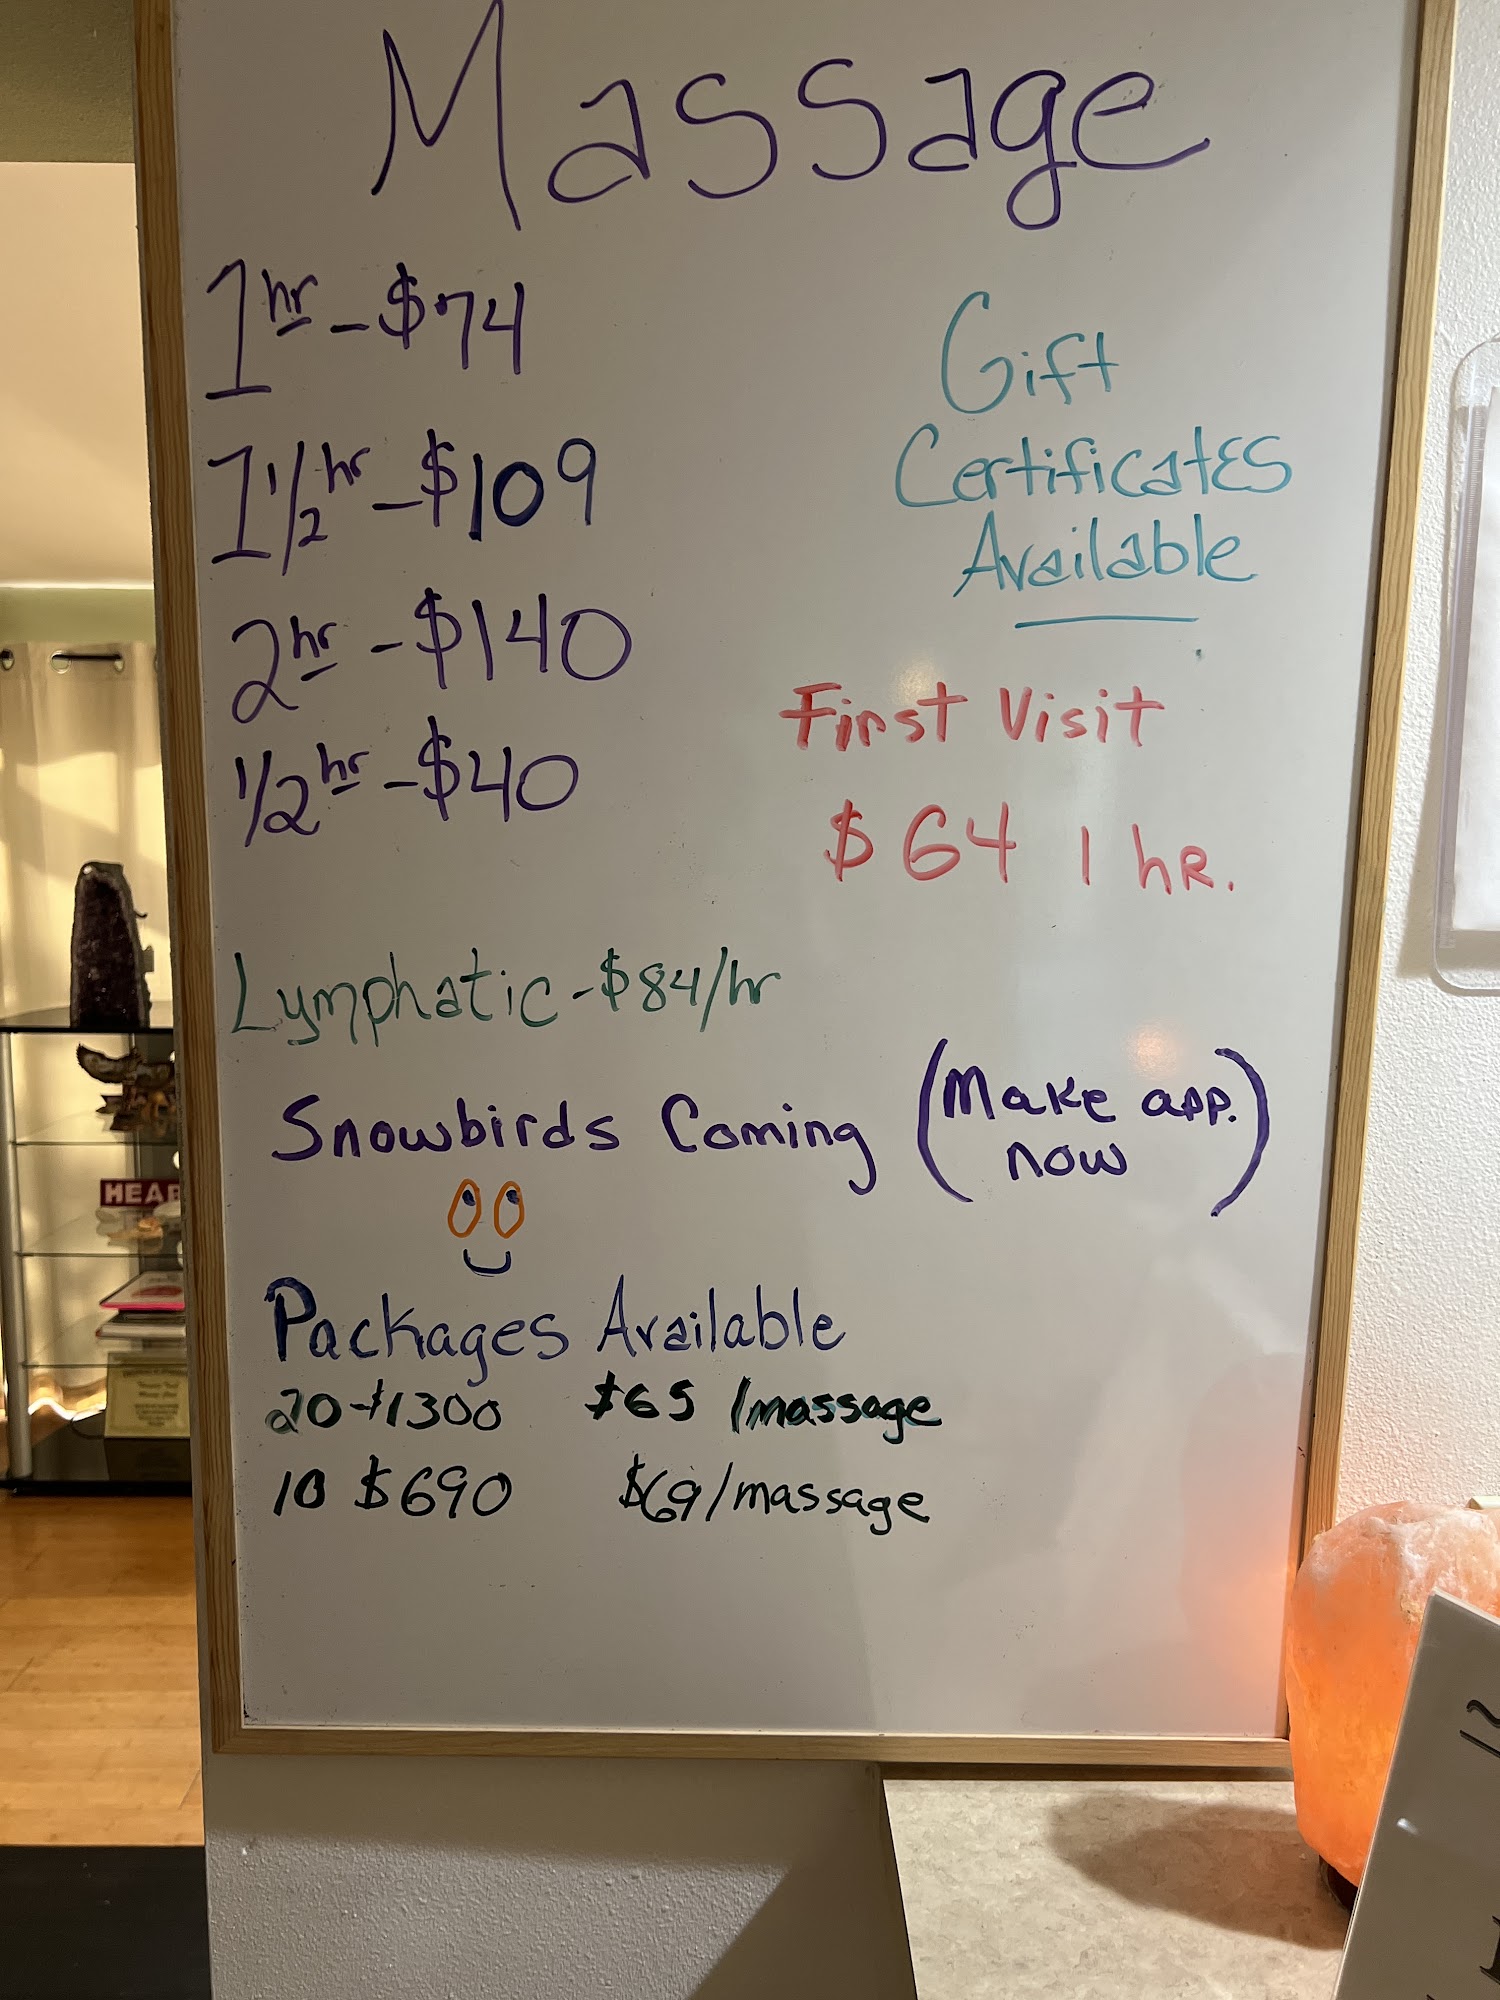 Massage
1 hr - $74
1 1/2 hr - $109
2 hr - $140
1/2 hr - $40
Gift
Certificates
Available
First Visit
$64 1 hr.
Lymphatic - $84/hr
Snowbirds Coming (Make app. now)
Packages Available
20 - $1300 $65 /massage
10 $690 $69/massage